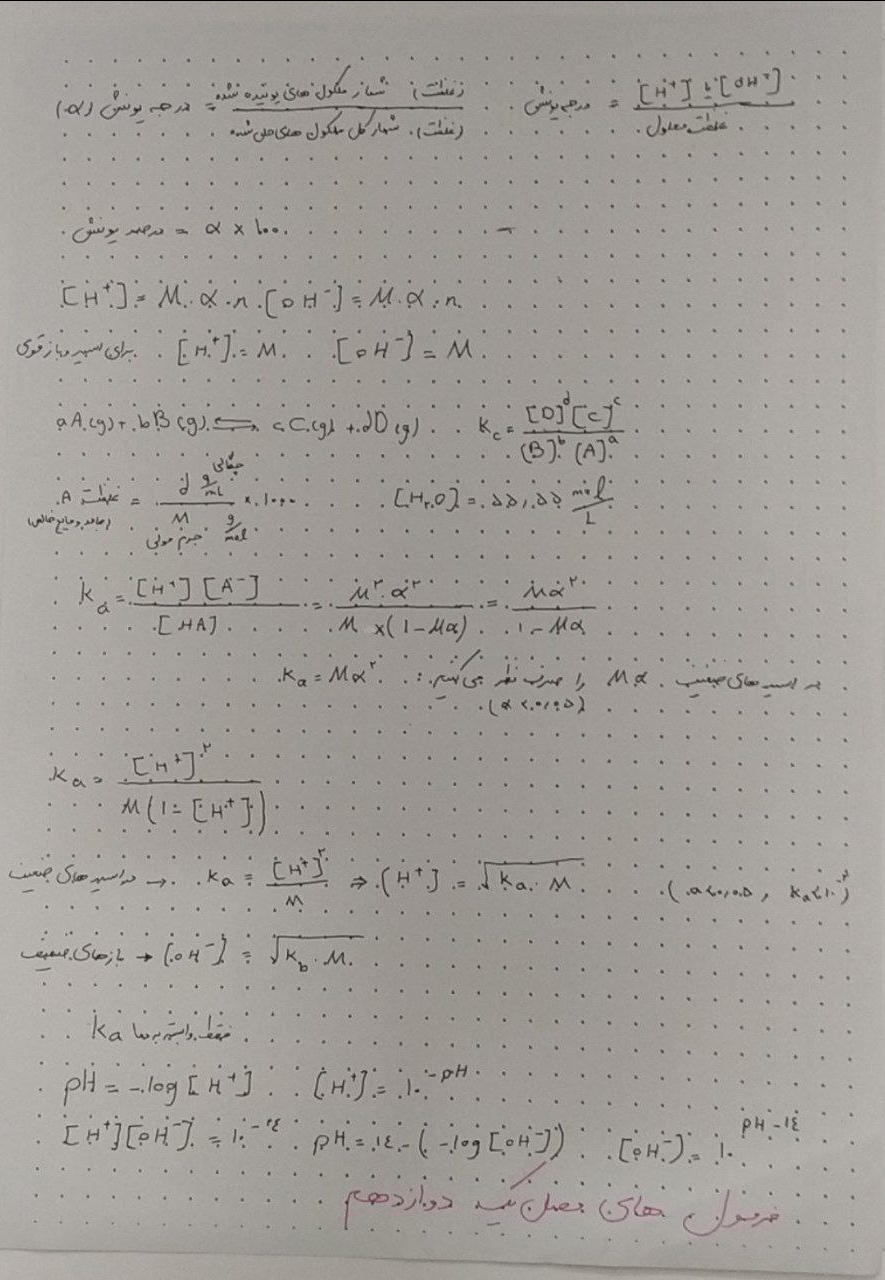 درجه یونش (α) = (غلظت) شمار مولکول های یونیده شده / (غلظت) شمار کل مولکول های حل شده    درجه یونش = [H⁺] یا [OH⁻] / غلظت محلول
درصد یونش = α × ۱۰۰
[H⁺] = M.α.n    [OH⁻] = M.α.n
برای اسید و باز قوی    [H⁺] = M    [OH⁻] = M
aA(g) + bB(g) ⇌ cC(g) + dD(g)    Kc = [D]ᵈ[C]ᶜ / (B)ᵇ(A)ᵃ
غلظت A (جامد و مایع خالص) = چگالی d g/mL / M جرم مولی g/mol × ۱۰۰۰    [H₂O] = ۵۵,۵۵ mol/L
Ka = [H⁺][A⁻] / [HA] = M².α² / M×(1-Mα) = Mα² / 1-Mα
در اسید های ضعیف Mα را صرف نظر می کنیم: Ka = Mα²
(α < ۰,۰۵)
Ka = [H⁺]² / M(1-[H⁺])
در اسید های ضعیف → Ka = [H⁺]² / M ⇒ [H⁺] = √Ka.M
بازهای ضعیف → [OH⁻] = √Kb.M
فقط وابسته به دما Ka
pH = -log[H⁺]    [H⁺] = ۱۰^-pH
[H⁺][OH⁻] = ۱۰^-۱۴    pH = ۱۴-(-log[OH⁻])    [OH⁻] = ۱۰^pH-۱۴
فرمول های فصل یک دوازدهم